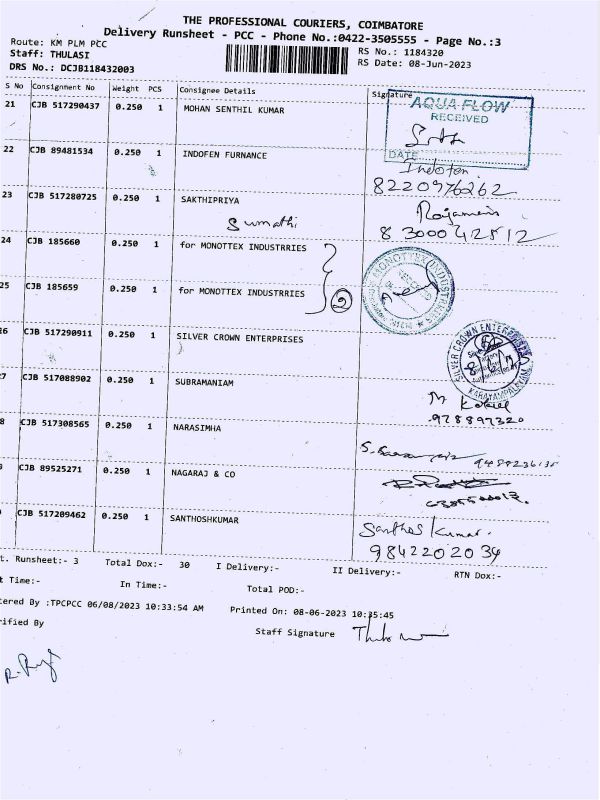 THE PROFESSIONAL COURIERS, COIMBATORE
Delivery Runsheet - PCC - Phone No.:0422-3505555 - Page No.:3
Route: KM PLM PCC
RS No.: 1184320
Staff: THULASI
RS Date: 08-Jun-2023
DRS No.: DCJB118432003
S No Consignment No Weight PCS Consignee Details Signature
21 CJB 517290437 0.250 1 MOHAN SENTHIL KUMAR
AQUA FLOW
RECEIVED
DATE
22 CJB 89481534 0.250 1 INDOFEN FURNANCE
Indofen
8220976262
23 CJB 517280725 0.250 1 SAKTHIPRIYA
Sumathi
8300042512
24 CJB 185660 0.250 1 for MONOTTEX INDUSTRRIES
25 CJB 185659 0.250 1 for MONOTTEX INDUSTRRIES
2
MONOTTEX INDUSTRIES
26 CJB 517290911 0.250 1 SILVER CROWN ENTERPRISES
SILVER CROWN ENTERPRISES
KARAYAMPALAYAM
7 CJB 517088902 0.250 1 SUBRAMANIAM
8 CJB 517308565 0.250 1 NARASIMHA
CJB 89525271 0.250 1 NAGARAJ & CO
CJB 517209462 0.250 1 SANTHOSHKUMAR
Santhos Kumar.
9842202034
t. Runsheet:- 3 Total Dox:- 30 I Delivery:- II Delivery:- RTN Dox:-
t Time:- In Time:- Total POD:-
tered By :TPCPCC 06/08/2023 10:33:54 AM Printed On: 08-06-2023 10:35:45
rified By
Staff Signature